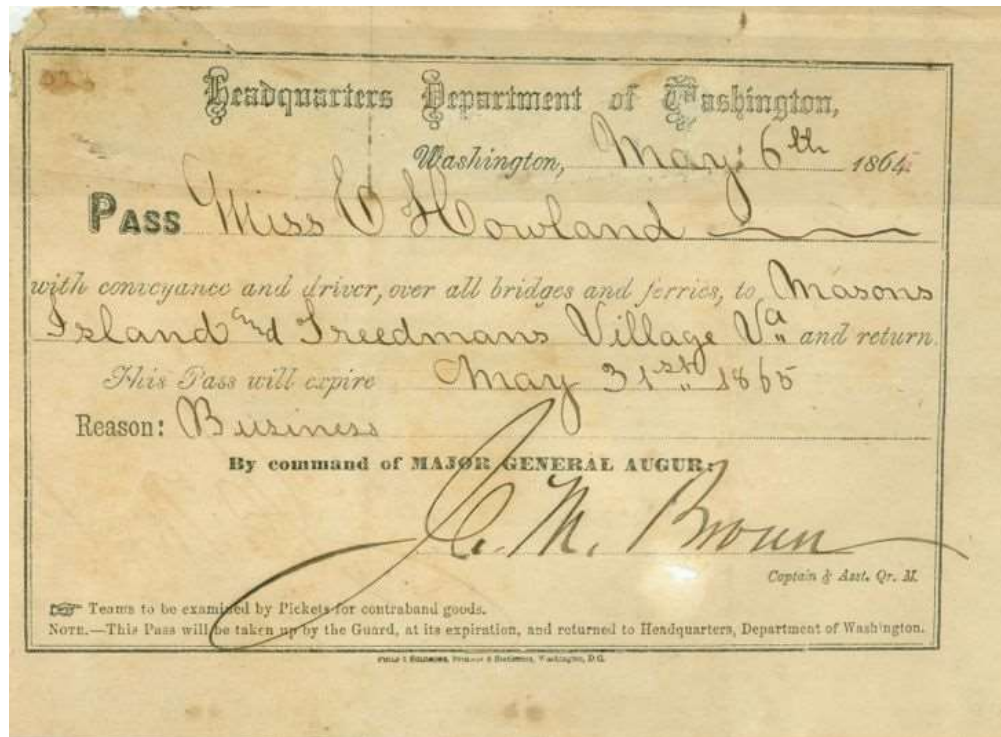 Headquarters Department of Washington,
Washington, May 6th 1864
PASS Miss E Howland
with conveyance and driver, over all bridges and ferries, to Masons
Island and Freedmans Village Va and return.
This Pass will expire May 31st 1865
Reason: Business
By command of MAJOR GENERAL AUGUR:
C. M. Brown
Captain & Asst. Qr. M.
☞ Teams to be examined by Pickets for contraband goods.
NOTE.—This Pass will be taken up by the Guard, at its expiration, and returned to Headquarters, Department of Washington.
Washington, D.C.